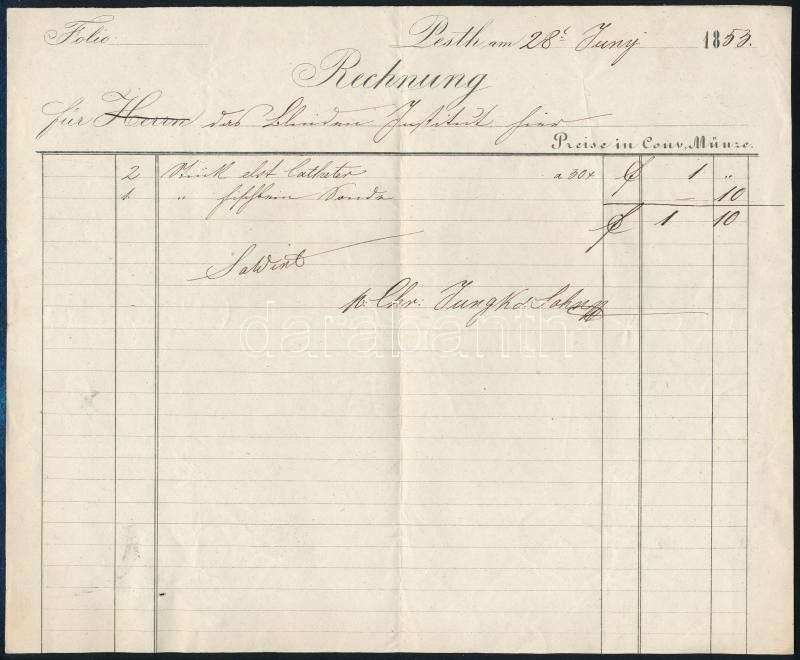 Folio: Pesth am 28t Juny 1853.
Rechnung
für Herrn das Blinden Institut hier
Preise in Conv. Münze.
2 Stück elst Catheter a 30x f 1 "
1 " fischbein Sonde — 10
f 1 10
Saldirt
p. Chr: Jungk & Sohn
darabanth